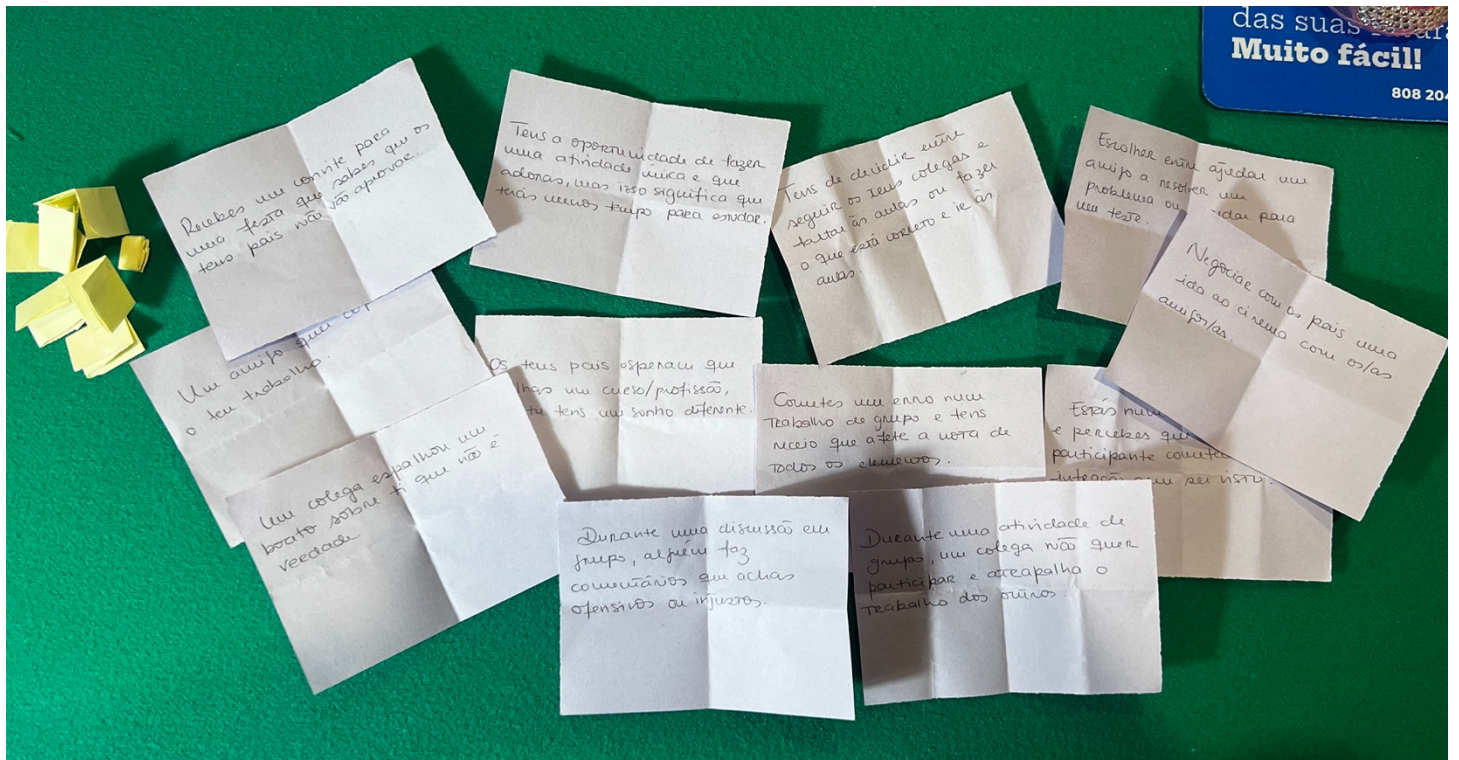 das suas
Muito fácil!
808 204
Recebes um convite para
uma festa que sabes que os
teus pais não vão aprovar.
Tens a oportunidade de fazer
uma atividade única e que
adoras, mas isso significa que
terás menos tempo para estudar.
Tens de decidir entre
seguir os teus colegas e
faltar às aulas ou fazer
o que está correto e ir às
aulas.
Escolher entre ajudar um
amigo a resolver um
problema ou para
um teste.
Negociar com os pais uma
ida ao cinema com os/as
amigos/as.
Um amigo quer
o teu trabalho.
Os teus pais esperam que
um curso/profissão,
tu tens um sonho diferente.
Cometes um erro num
trabalho de grupo e tens
receio que afete a nota de
todos os elementos.
Estás num
e percebes que
participante
sem ser visto.
Um colega espalhou um
boato sobre ti que não é
verdade
Durante uma discussão em
grupo, alguém faz
comentários que achas
ofensivos ou injustos.
Durante uma atividade de
grupo, um colega não quer
participar e atrapalha o
trabalho dos outros.